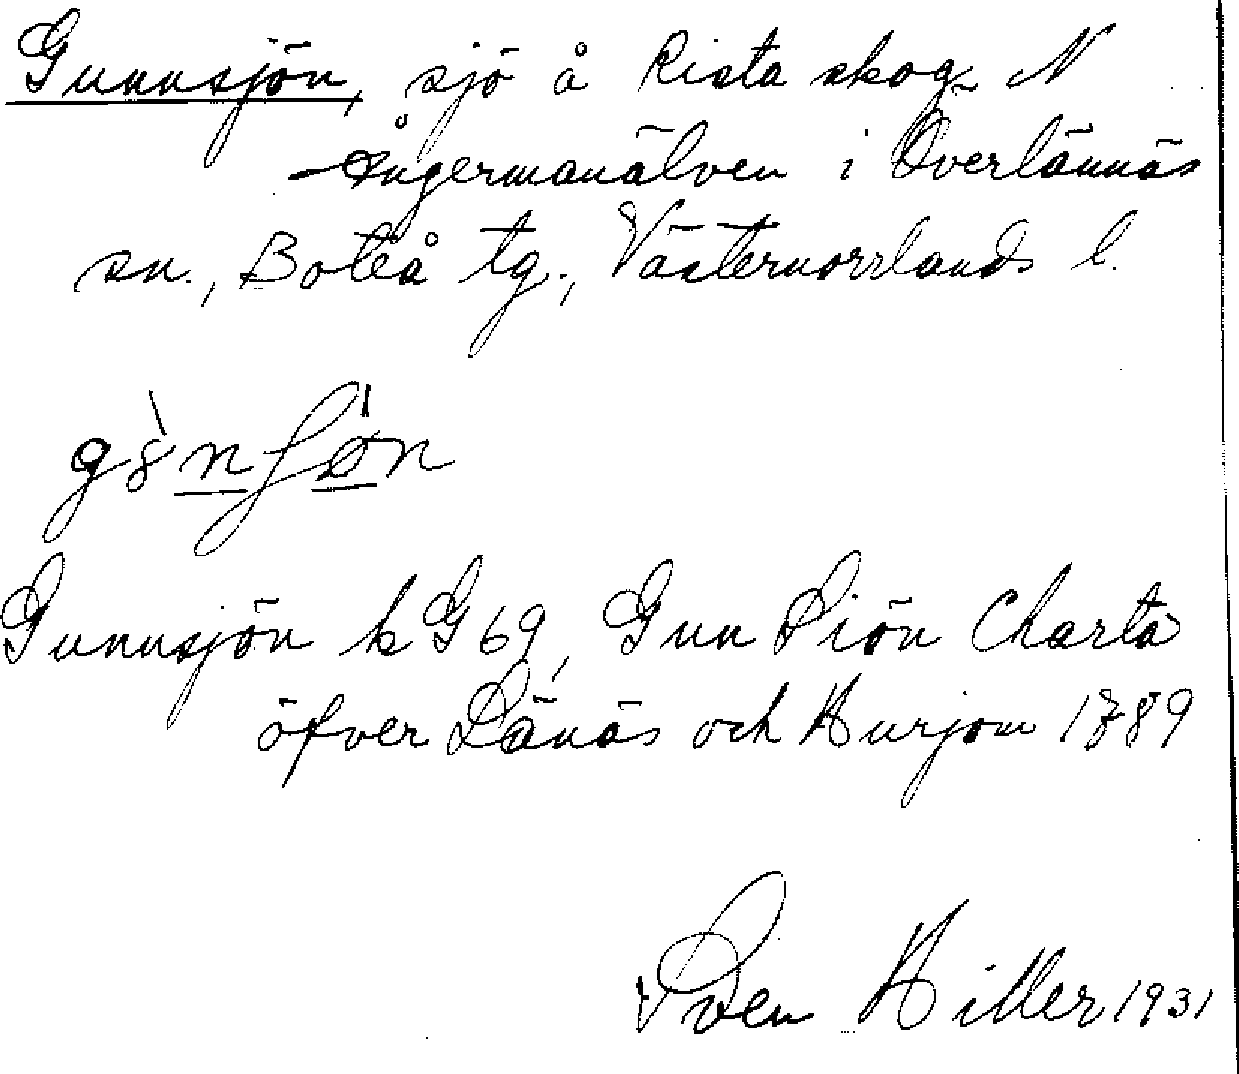 Gunnsjön, sjö å Rista skog N
Ångermanälven i Överlännäs
sn., Boteå tg., Västernorrlands l.
Gunnsjön k G 69, Gun Siön Charta
öfver Länäs och Hurjom 1789
Sven Hiller 1931